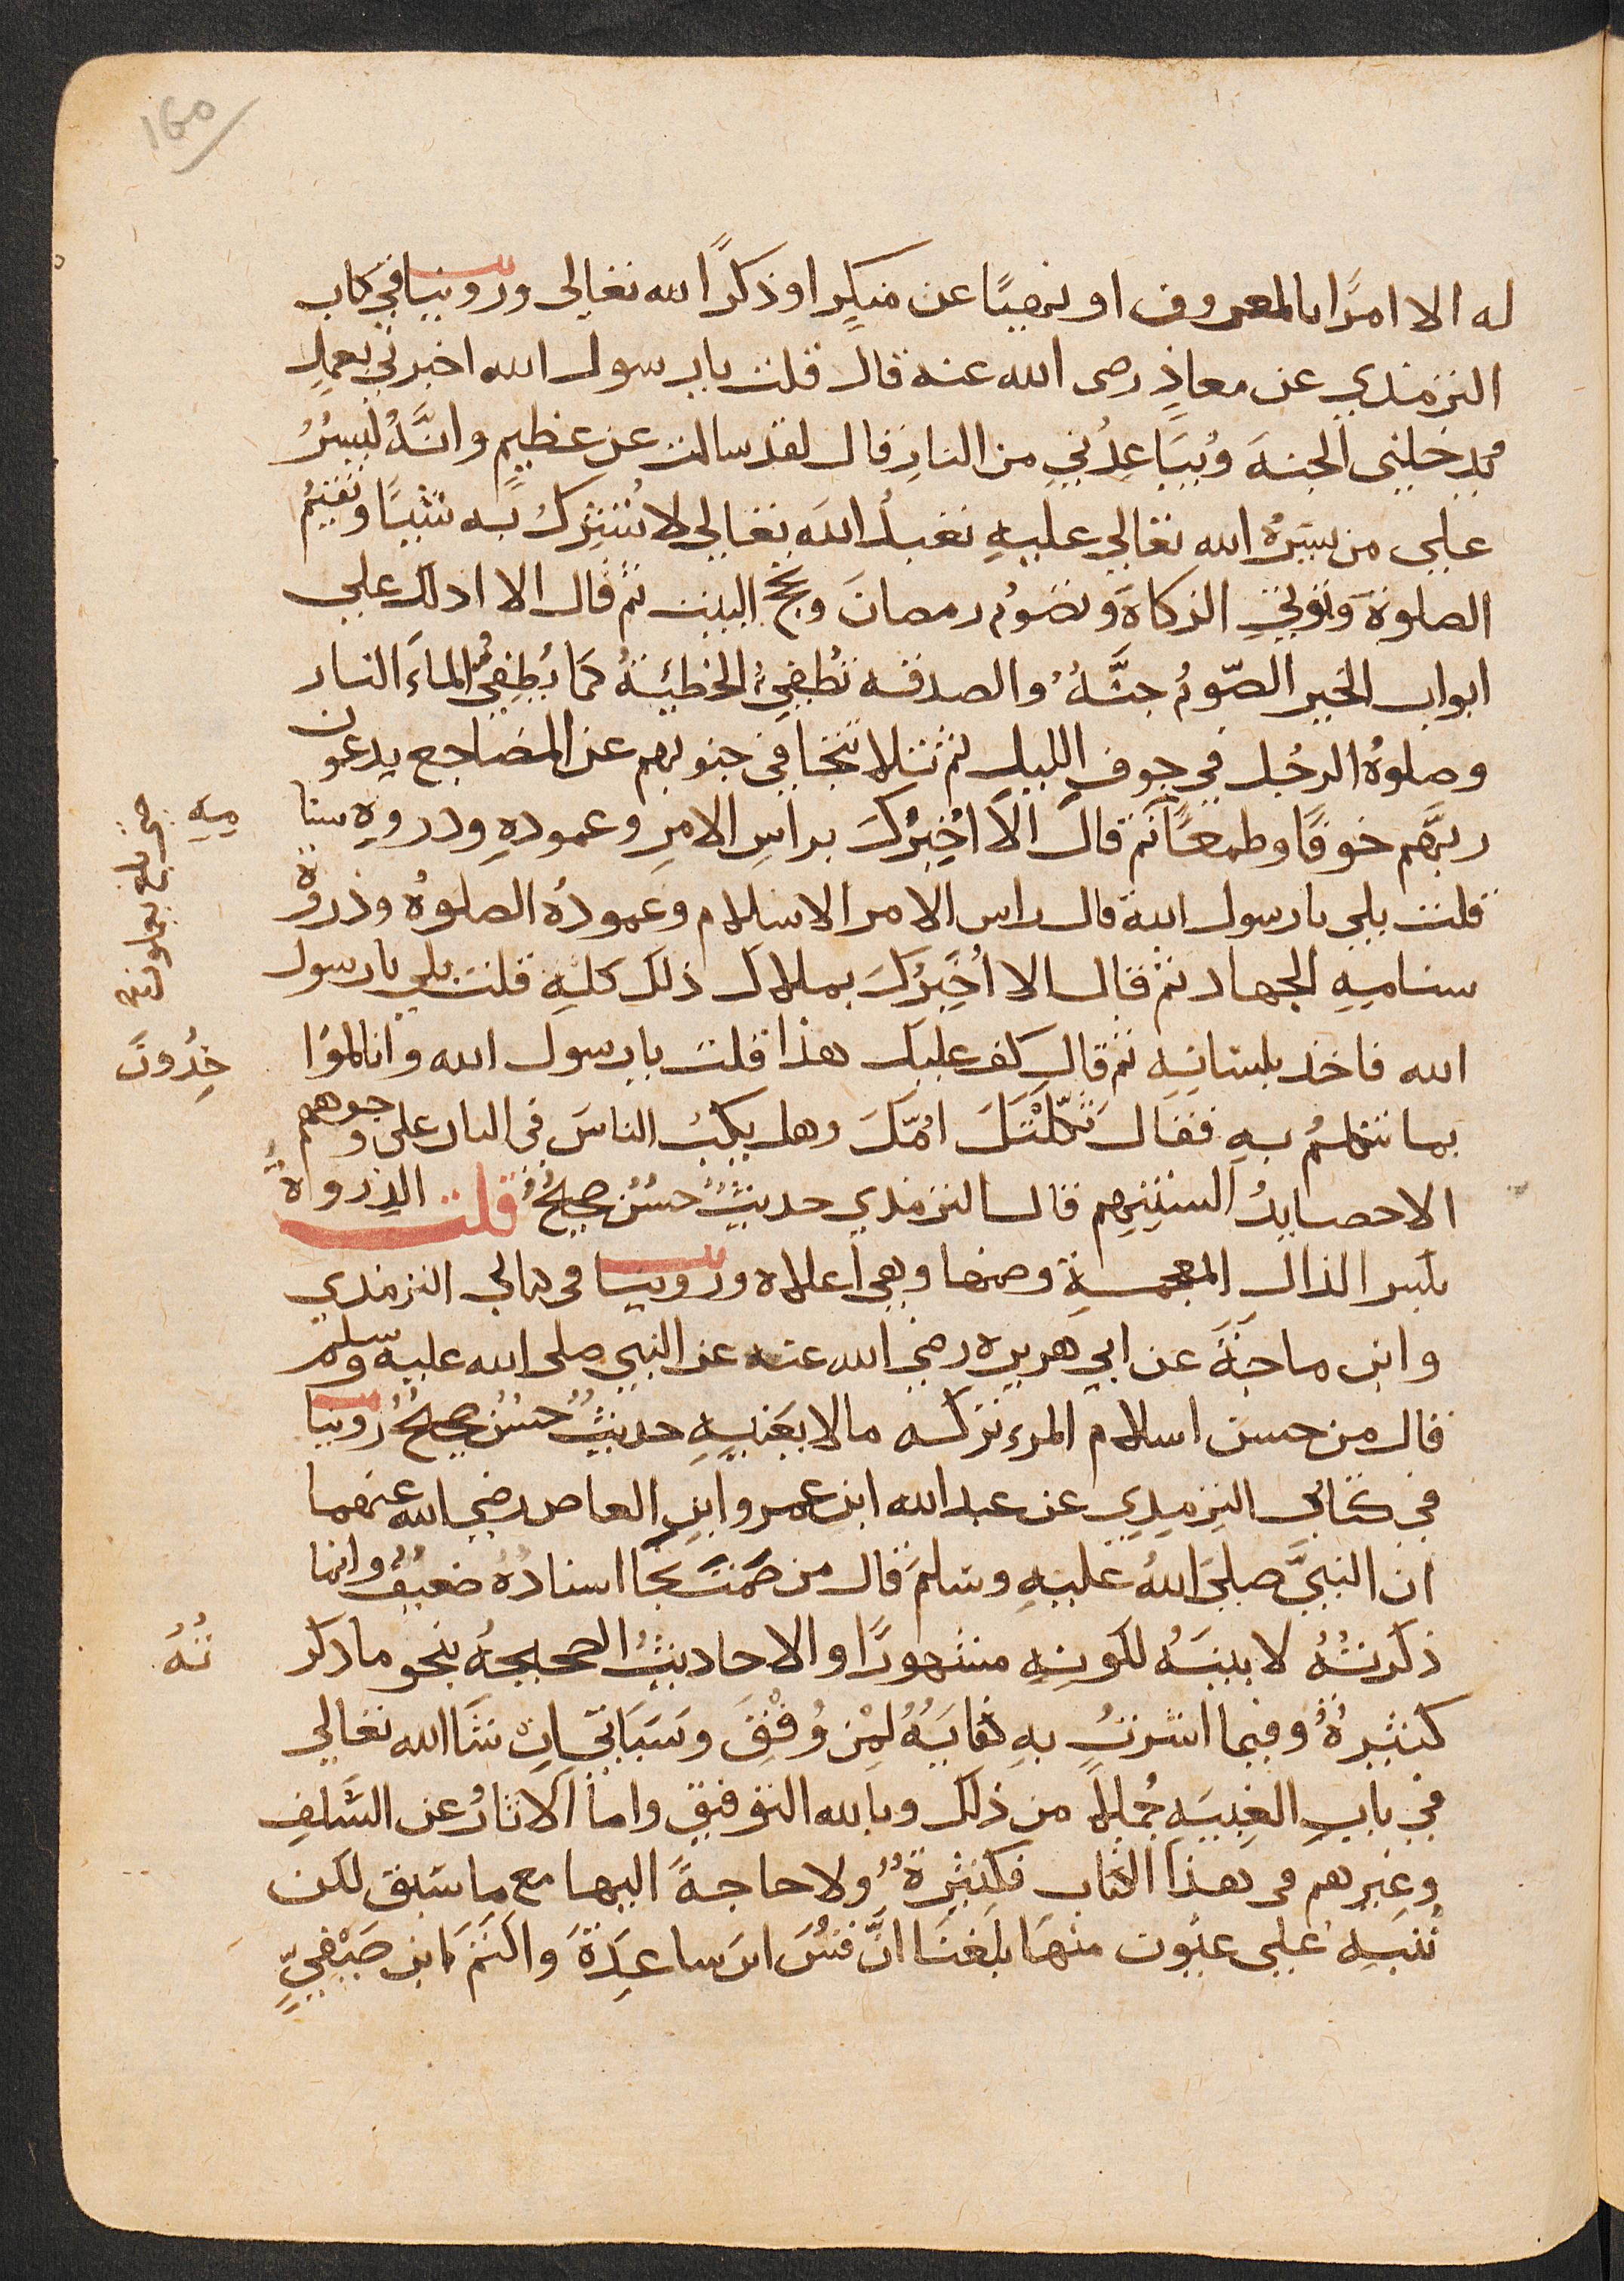 160
له الا امرًا بالمعروف او نهيًا عن منكرٍ او ذكرًا لله تعالى وروينا في كتاب
الترمذي عن معاذٍ رضى الله عنه قال قلت يا رسول الله اخبرني بعملٍ
يدخلني الجنةَ ويُباعِدُني من النارِ قال لقد سالت عن عظيمٍ وانَّهُ ليسيرُ
على من يسّرهُ الله تعالى عليهِ تعبدُ اللهَ تعالى لا تُشرِكُ به شيئًا وتقيمُ
الصلوةَ وتوتي الزكاةَ وتصومُ رمضانَ وتحجّ البيت ثم قال الا ادلك على
ابواب الخير الصّومُ جنَّةٌ والصدقه تطفئُ الخطيئةَ كما يُطفِئُ الماءَ النار
وصلوةُ الرجُل في جوفِ الليلِ ثم تلا تتجافى جنوبهم عن المضاجع يدعون
ربّهم خوفًا وطمعًا ثم قال الَا اُخبِرُكَ براسِ الامرِ وعمودهِ وذروهِ سنا
ميهِ
قلت بلى يا رسول الله قال راس الامر الاسلام وعمودُه الصلوةُ وذروةُ
سناميهِ الجهاد ثم قال الا اُخبِرُكَ بملاك ذلك كلهِ قلت بلى يا رسول
الله فاخذ بلسانِهِ ثم قال كف عليك هذا قلت يا رسول الله وانا لموا
خِذُونَ
بما نتكلمُ بهِ فقال ثكلَتْكَ امّكَ وهل يكبُ الناسَ في النار على وجوههم
الا حصايدُ السنتِهم قال الترمذي حديثٌ حسنٌ صحيحٌ قلت الذِرواةُ
بكسر الذال المعجمةِ وضمها وهي اعلاه وروينا في كتابي الترمذي
وابن ماجةَ عن ابي هريره رضي الله عنه عن النبي صلى الله عليه وسلم
قال من حسن اسلام المرء تركه مالا يعنيهِ حديثٌ حسنٌ صحيحٌ روينا
في كتابي الترمذي عن عبد الله ابن عمرو ابن العاص رضي الله عنهما
ان النبيَّ صلى اللهُ عليهِ وسلمَ قال من صَمَتَ نجَا اسنادُهُ ضعيفٌ وانما
ذكرتُهُ لا بينَهُ لكونِهِ مشهورًا والاحاديثُ الصحيحةُ بنحو ما ذكر
تُهُ
كثيرةٌ وفيما اشرتُ بهِ كفايَةٌ لمِنْ وُفِّقَ وسَيَاتي اِنْ شَا الله تعالى
في بابِ الغيبَهِ جُملاً من ذلك وبالله التوفيق واما الاثارُ عن السَّلفِ
وغيرهم في هذا الكتاب فكثِيرةٌ ولا حاجةَ اليها مع ما سَبق لكن
نُنبه على عيون منها بلغنا انَّ قسَ ابن ساعِدَةَ واكثمَ ابن صَيْفيٍّ